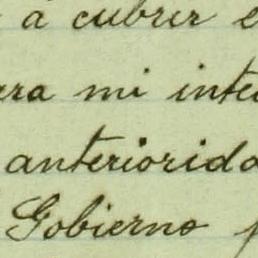 á cubrir e
era mi inte
anteriorida
Gobierno p